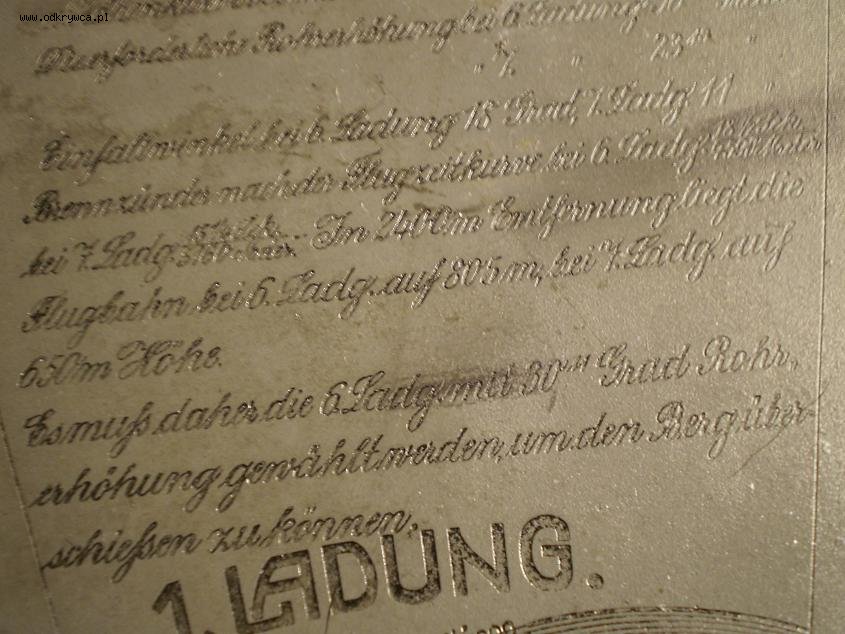 www.odkrywca.pl
Die erforderliche Rohrerhöhung bei 6. Ladung 30
" 7. " 23 "
Einfallwinkel bei 6. Ladung 18 Grad, 7. Ladg. 11 "
Brennzünder nach der Flugzeitkurve bei 6. Ladg.
bei 7. Ladg. In 2400m Entfernung liegt die
Flugbahn bei 6. Ladg. auf 805 m, bei 7. Ladg. auf
650m Höhe.
Es muß daher die 6. Ladg. mit 30 Grad Rohr,
erhöhung gewählt werden, um den Berg über-
schießen zu können.
1. LADUNG.